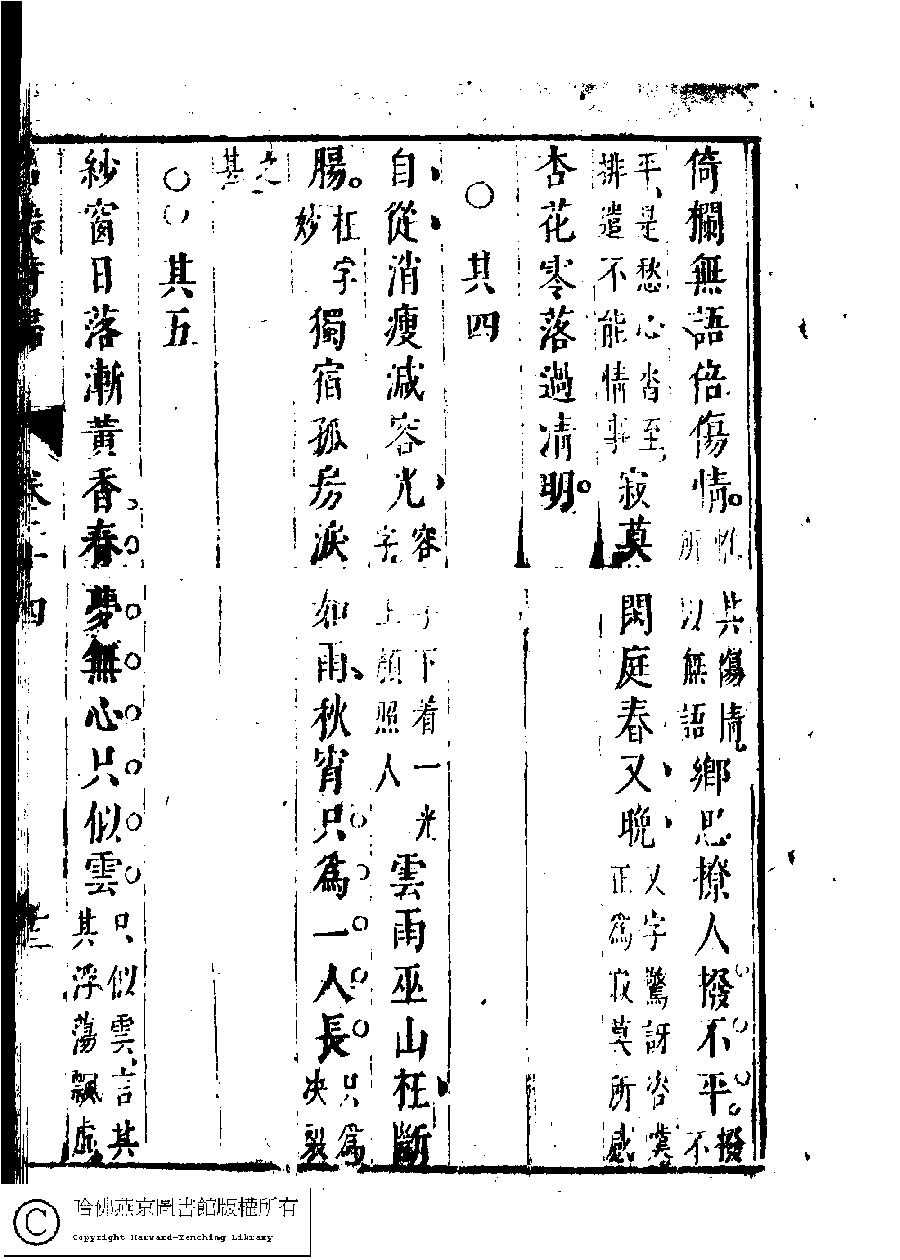 倚欄無語倍傷情。惟其傷情、所以無語鄉思撩人撥不平。撥不
平、是愁心沓至、排遣不能情事寂莫閑庭春又晚、又字驚訝咨嘆正為寂莫所感
杏花零落過清明。
○ 其四
自從消瘦減容光、容子下着一光字上顏照人雲雨巫山枉斷
腸。枉字妙獨宿孤房淚如雨、秋宵只為一人長只為決裂
之甚
○○ 其五
紗窗日落漸黃香、春夢無心只似雲只似雲、言其其浮蕩飄虛
卷二十四
哈佛燕京圖書館版權所有
Copyright Harvard-Yenching Library